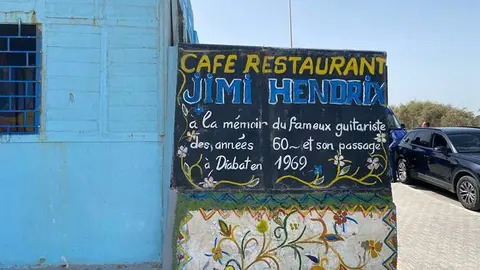 CAFE RESTAURANT
JIMI HENDRIX
a la mémoire du fameux guitariste
des années 60~ et son passage
à Diabat en 1969